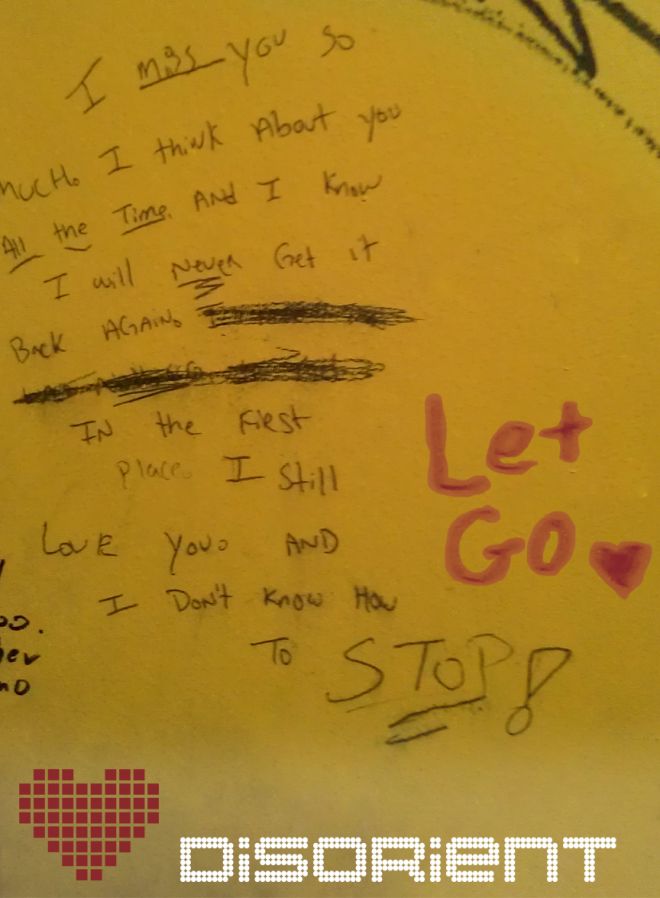 I miss you so
much. I think About you
All the Time. And I know
I will Never Get it
Back AGAIN.
IN the First
place. I Still
Love you. AND
I Don't know How
To STOP!
Let
GO
DiSORiENT